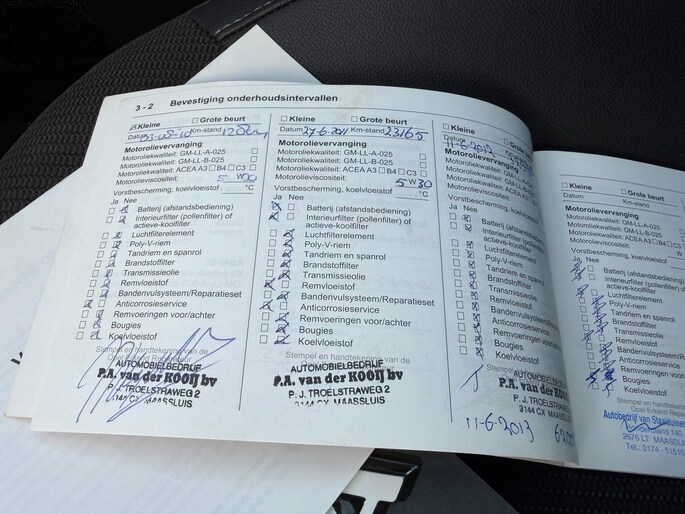 3 - 2 Bevestiging onderhoudsintervallen
Kleine Grote beurt
Datum Km-stand
Motorolievervanging
Motoroliekwaliteit: GM-LL-A-025
Motoroliekwaliteit: GM-LL-B-025
Motoroliekwaliteit: ACEA A3 B4 C3
Motorolieviscositeit: 5 W
Vorstbescherming, koelvloeistof °C
Ja Nee
Batterij (afstandsbediening)
Interieurfilter (pollenfilter) of
actieve-koolfilter
Luchtfilterelement
Poly-V-riem
Tandriem en spanrol
Brandstoffilter
Transmissieolie
Remvloeistof
Bandenvulsysteem/Reparatieset
Anticorrosieservice
Remvoeringen voor/achter
Bougies
Koelvloeistof
Stempel en handtekening van de
AUTOMOBIELBEDRIJF
P.A. van der KOOIJ bv
P. J. TROELSTRAWEG 2
3144 CX MAASSLUIS
Kleine Grote beurt
Datum 27-6-2011 Km-stand 23165
Motorolievervanging
Motoroliekwaliteit: GM-LL-A-025
Motoroliekwaliteit: GM-LL-B-025
Motoroliekwaliteit: ACEA A3 B4 C3
Motorolieviscositeit: 5 W 30
Vorstbescherming, koelvloeistof °C
Ja Nee
Batterij (afstandsbediening)
Interieurfilter (pollenfilter) of
actieve-koolfilter
Luchtfilterelement
Poly-V-riem
Tandriem en spanrol
Brandstoffilter
Transmissieolie
Remvloeistof
Bandenvulsysteem/Reparatieset
Anticorrosieservice
Remvoeringen voor/achter
Bougies
Koelvloeistof
Stempel en handtekening van de
AUTOMOBIELBEDRIJF
P.A. van der KOOIJ bv
P. J. TROELSTRAWEG 2
3144 CX MAASSLUIS
Kleine Grote beurt
Motorolievervanging
Motoroliekwaliteit: GM-LL-A-025
Motoroliekwaliteit: GM-LL-B-025
Motoroliekwaliteit: ACEA A3 B4 C3
Motorolieviscositeit:
Vorstbescherming, koelvloeistof
Ja Nee
Batterij (afstandsbediening)
Interieurfilter (pollenfilter) of
actieve-koolfilter
Luchtfilterelement
Poly-V-riem
Tandriem en spanrol
Brandstoffilter
Transmissieolie
Remvloeistof
Bandenvulsysteem/Reparatieset
Anticorrosieservice
Remvoeringen voor/achter
Bougies
Koelvloeistof
Stempel en handtekening van de
AUTOMOBIELBEDRIJF
P.A. van der KOOIJ
P. J. TROELSTRAWEG
3144 CX MAASSLUIS
11-6-2013
Kleine Grote beurt
Datum Km-stand
Motorolievervanging
Motoroliekwaliteit: GM-LL-A-025
Motoroliekwaliteit: GM-LL-B-025
Motoroliekwaliteit: ACEA A3 B4 C3
Motorolieviscositeit:
Vorstbescherming, koelvloeistof
Ja Nee
Batterij (afstandsbediening)
Interieurfilter (pollenfilter) of
actieve-koolfilter
Luchtfilterelement
Poly-V-riem
Tandriem en spanrol
Brandstoffilter
Transmissieolie
Remvloeistof
Bandenvulsysteem/Reparatieset
Anticorrosieservice
Remvoeringen voor/achter
Bougies
Koelvloeistof
Stempel en handtekening
Opel Erkend
Autobedrijf van Staalduinen
140
2676 LT MAASDIJK
Tel.: 0174 - 51510